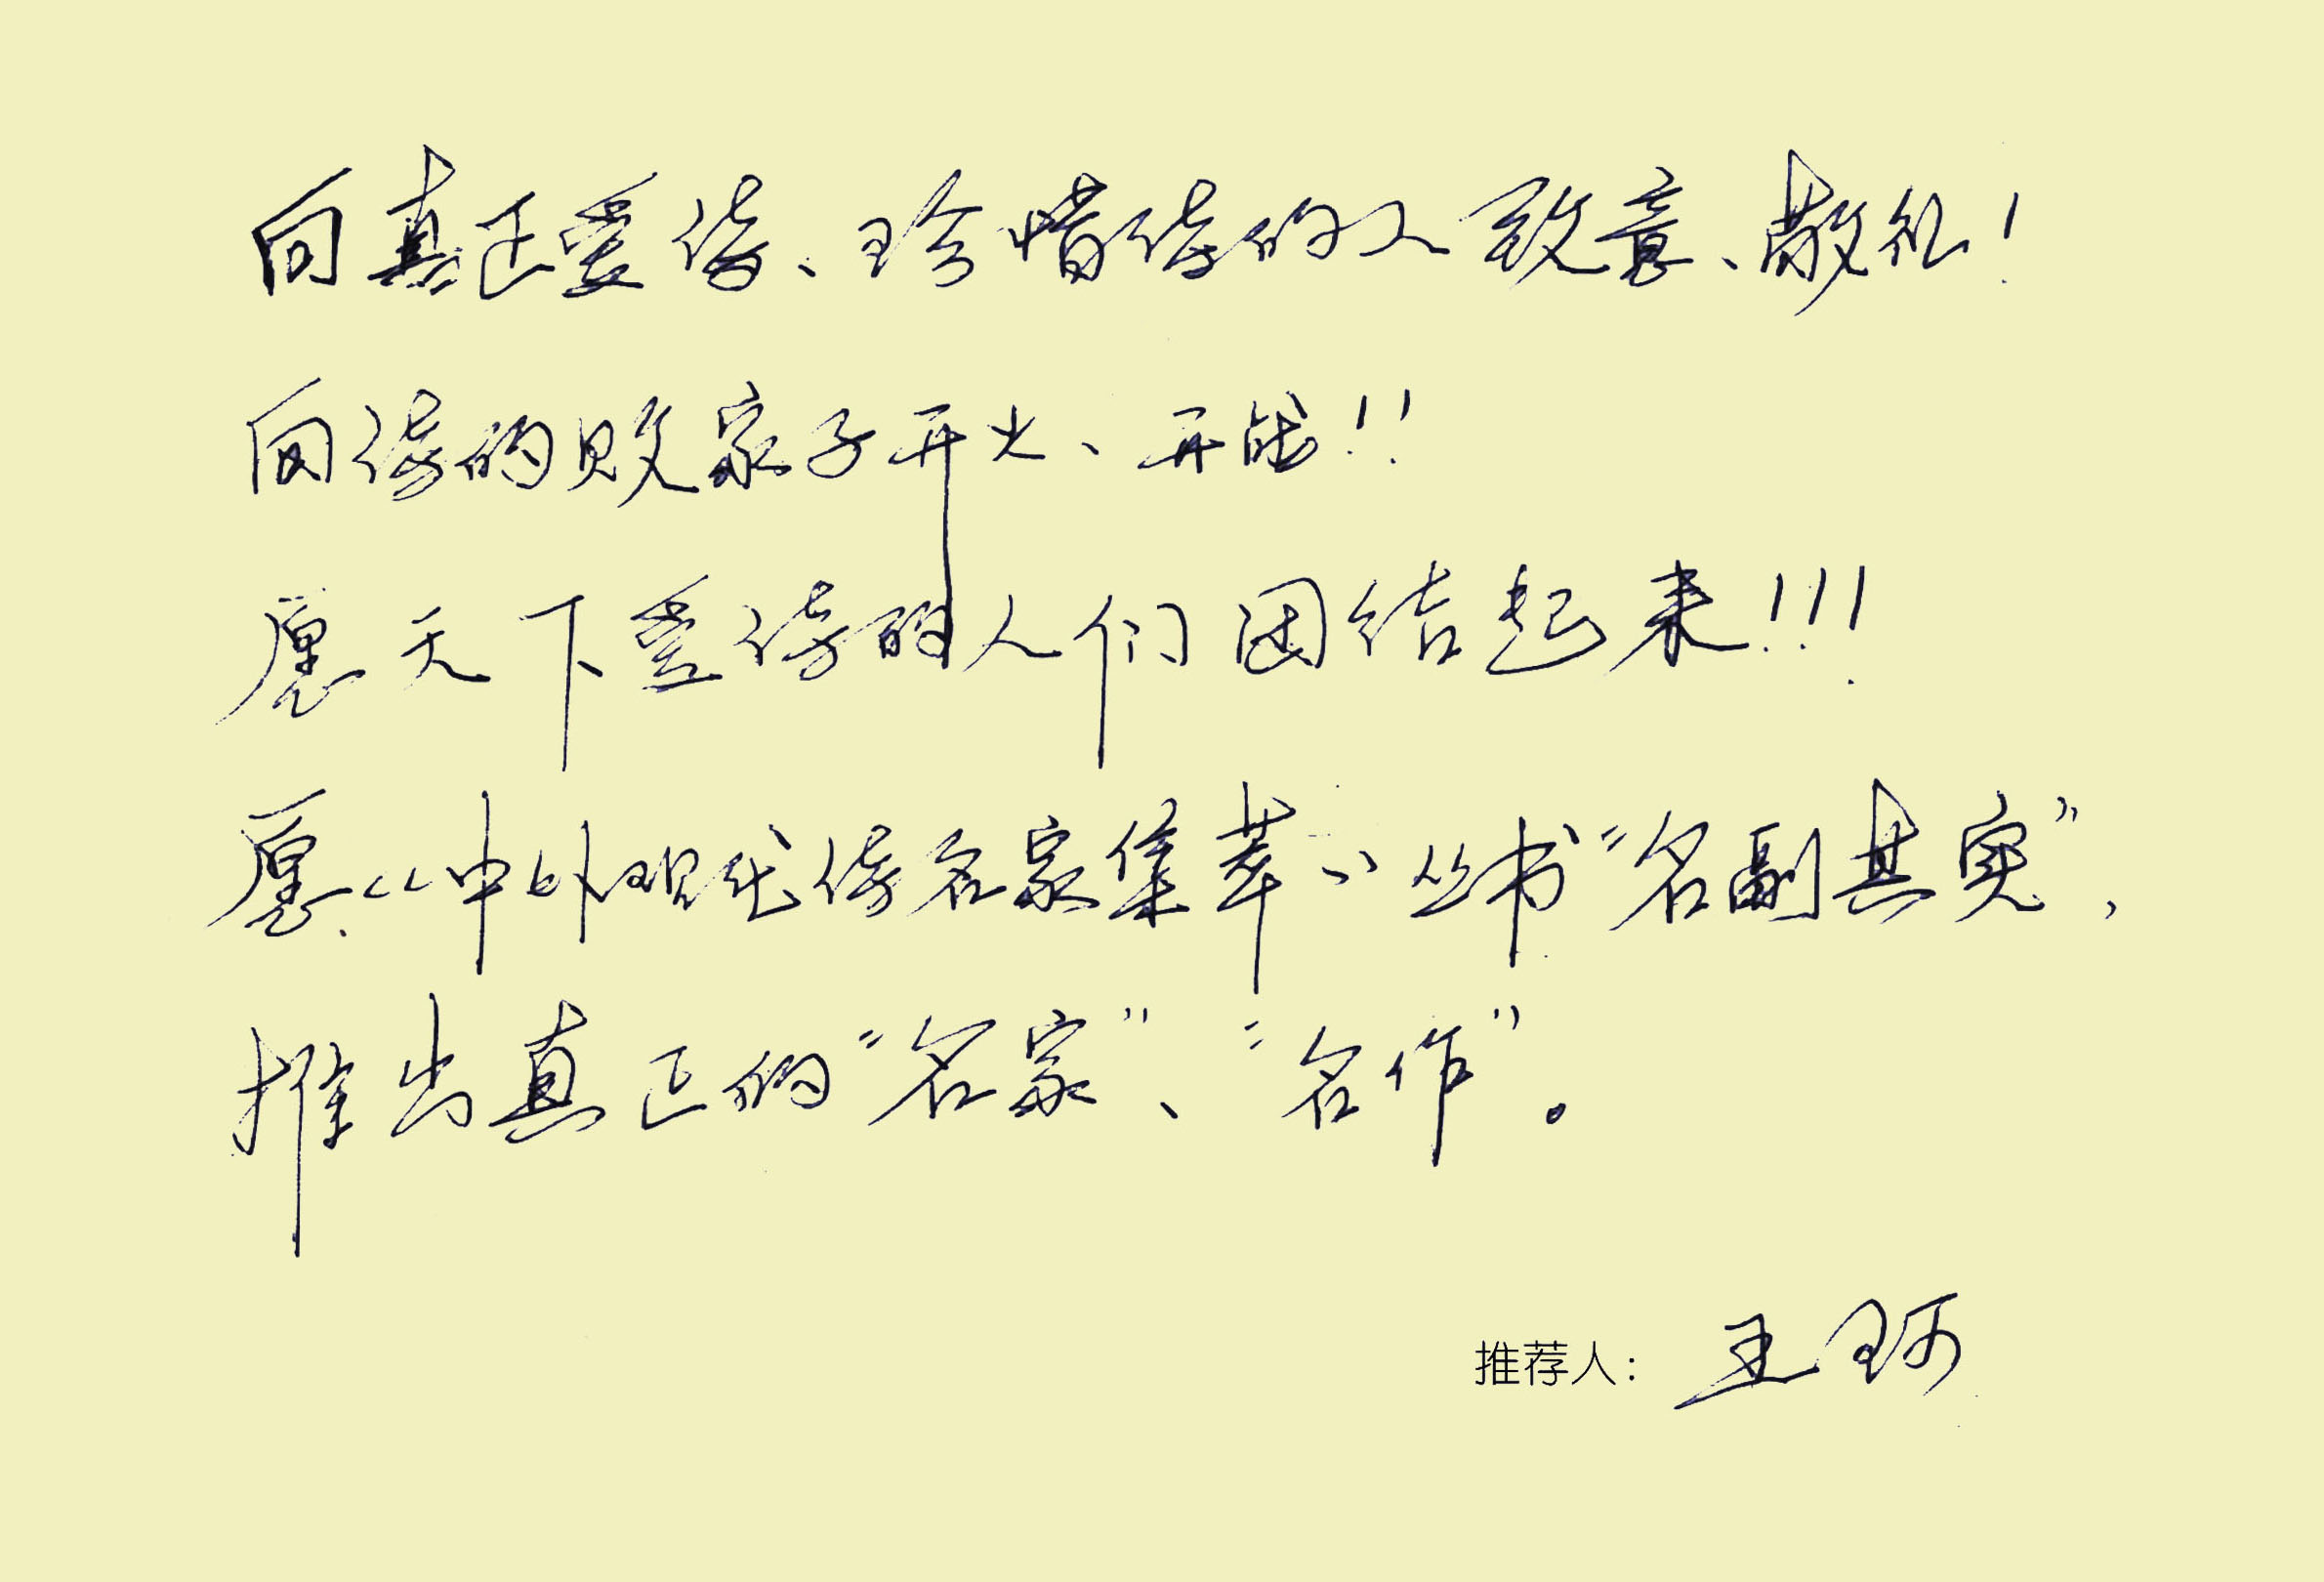 向真正爱诗、珍惜诗的人致意、敬礼！
向诗的败家子开火、开战！！
愿天下爱诗的人们团结起来！！！
愿《中外现代诗名家集萃》丛书“名副其实”，
推出真正的“名家”、“名作”。
推荐人：王珂